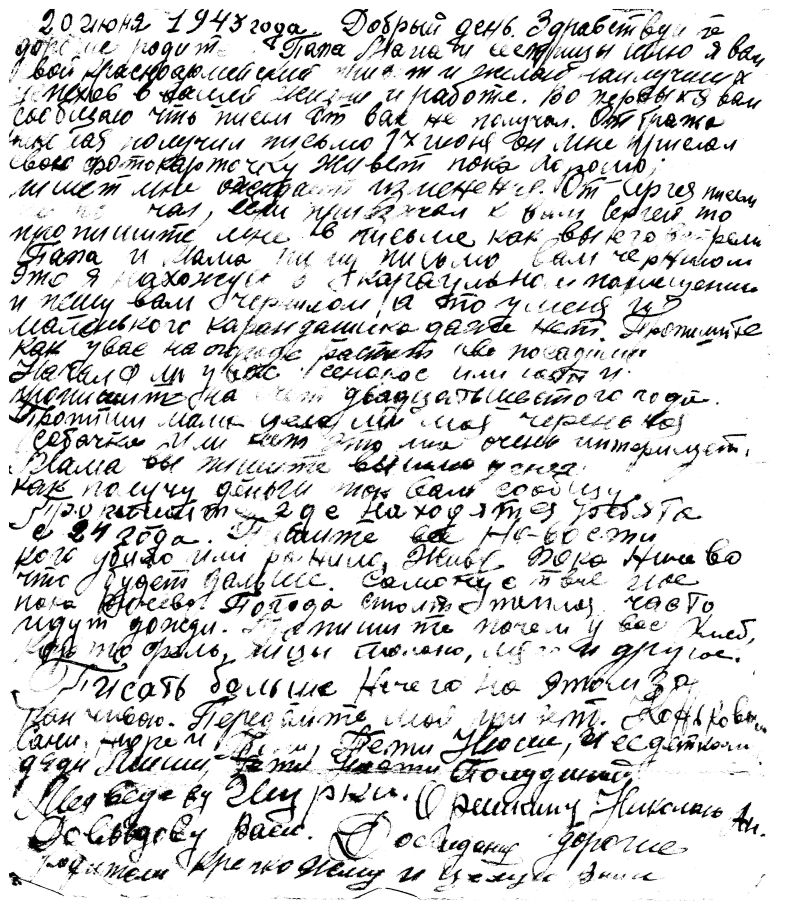 20 июня 1943 года. Добрый день. Здравствуйте
дорогие родители Папа Мама и сестрицы шлю я вам
свой красноармейский привет и желаю наилучших
успехов в вашей жизни и работе. Во первых я вам
сообщаю что писем от вас не получал. От брата
получил письмо 17 июня он мне прислал
свою фотокарточку живет пока хорошо,
пишет мне изменение. От Сергея писем
не чал, если приезжал к вам Сергей то
пропишите мне в письме как вы его встрели
Папа и Мама пишу письмо вам чернилом
это я нахожусь в караульном помещении
и пишу вам чернилом, а то у меня и
маленького карандашика даже нет. Пропишите
как у вас на огороде растет посадили
Начался ли у вас сенокос или нет и
пропишите на счет двадцатьшестого года.
Пропиши мама цела ли моя черенькая
собачка или нет это мне очень интересует.
Мама вы пишите выслали денег
как получу деньги так вам сообщу
Пропишите где находятся ребята
с 24 года. Пишите все новости
кого убило или ранило. Живу пока ничево
что будет дальше. Самочувствие мое
пока ничево. Погода стоит теплая, часто
идут дожди. Пропишите почем у вас хлеб,
картофель, яицы молоко, мясо и другое.
Писать больше нечего на этом за
канчиваю. Передайте мой привет.
Вани, Пети Нюси, и с детками
дяди Миши,
Медведеву Шурки. Николаю Ан.
Давыдову Васи. Досвидания дорогие
родители крепко жму и целую